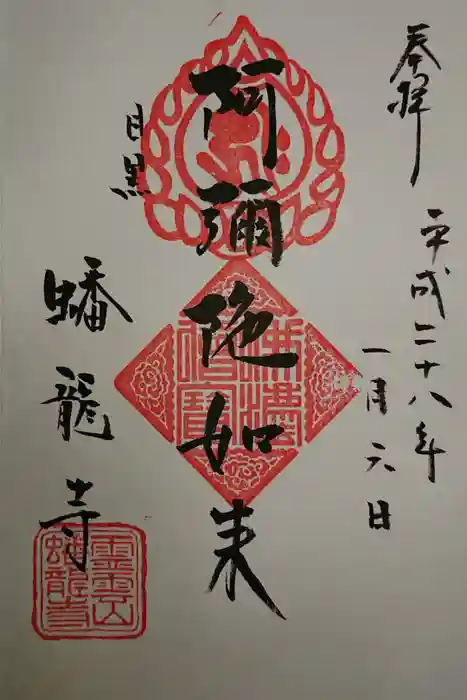 奉拝
平成二十八年
一月六日
阿彌陀如来
目黒
蟠龍寺
霊雲山
蟠龍寺